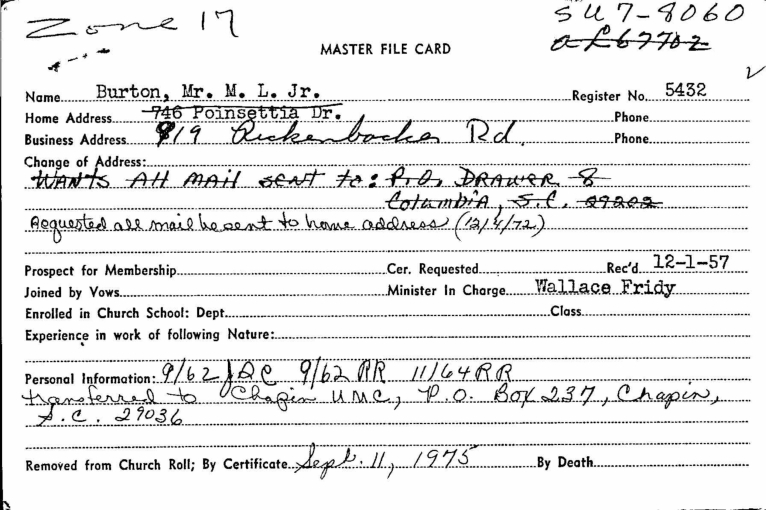 Zone 17
SU7-8060
AL67702
MASTER FILE CARD
Name Burton, Mr. M. L. Jr. Register No. 5432
Home Address 746 Poinsettia Dr. Phone
Business Address 919 Rickenbacker Rd. Phone
Change of Address:
WANTS All MAil SENT to: P.O. DRAWER 8
Columbia, S.C. 29202
Requested all mail be sent to home address (12/4/72)
Prospect for Membership Cer. Requested Rec'd 12-1-57
Joined by Vows Minister In Charge Wallace Fridy
Enrolled in Church School: Dept. Class
Experience in work of following Nature:
Personal Information: 9/62 DC 9/62 RR 11/64 RR
transferred to Chapin UMC, P.O. Box 237, Chapin,
S.C. 29036
Removed from Church Roll; By Certificate Sept. 11, 1975 By Death